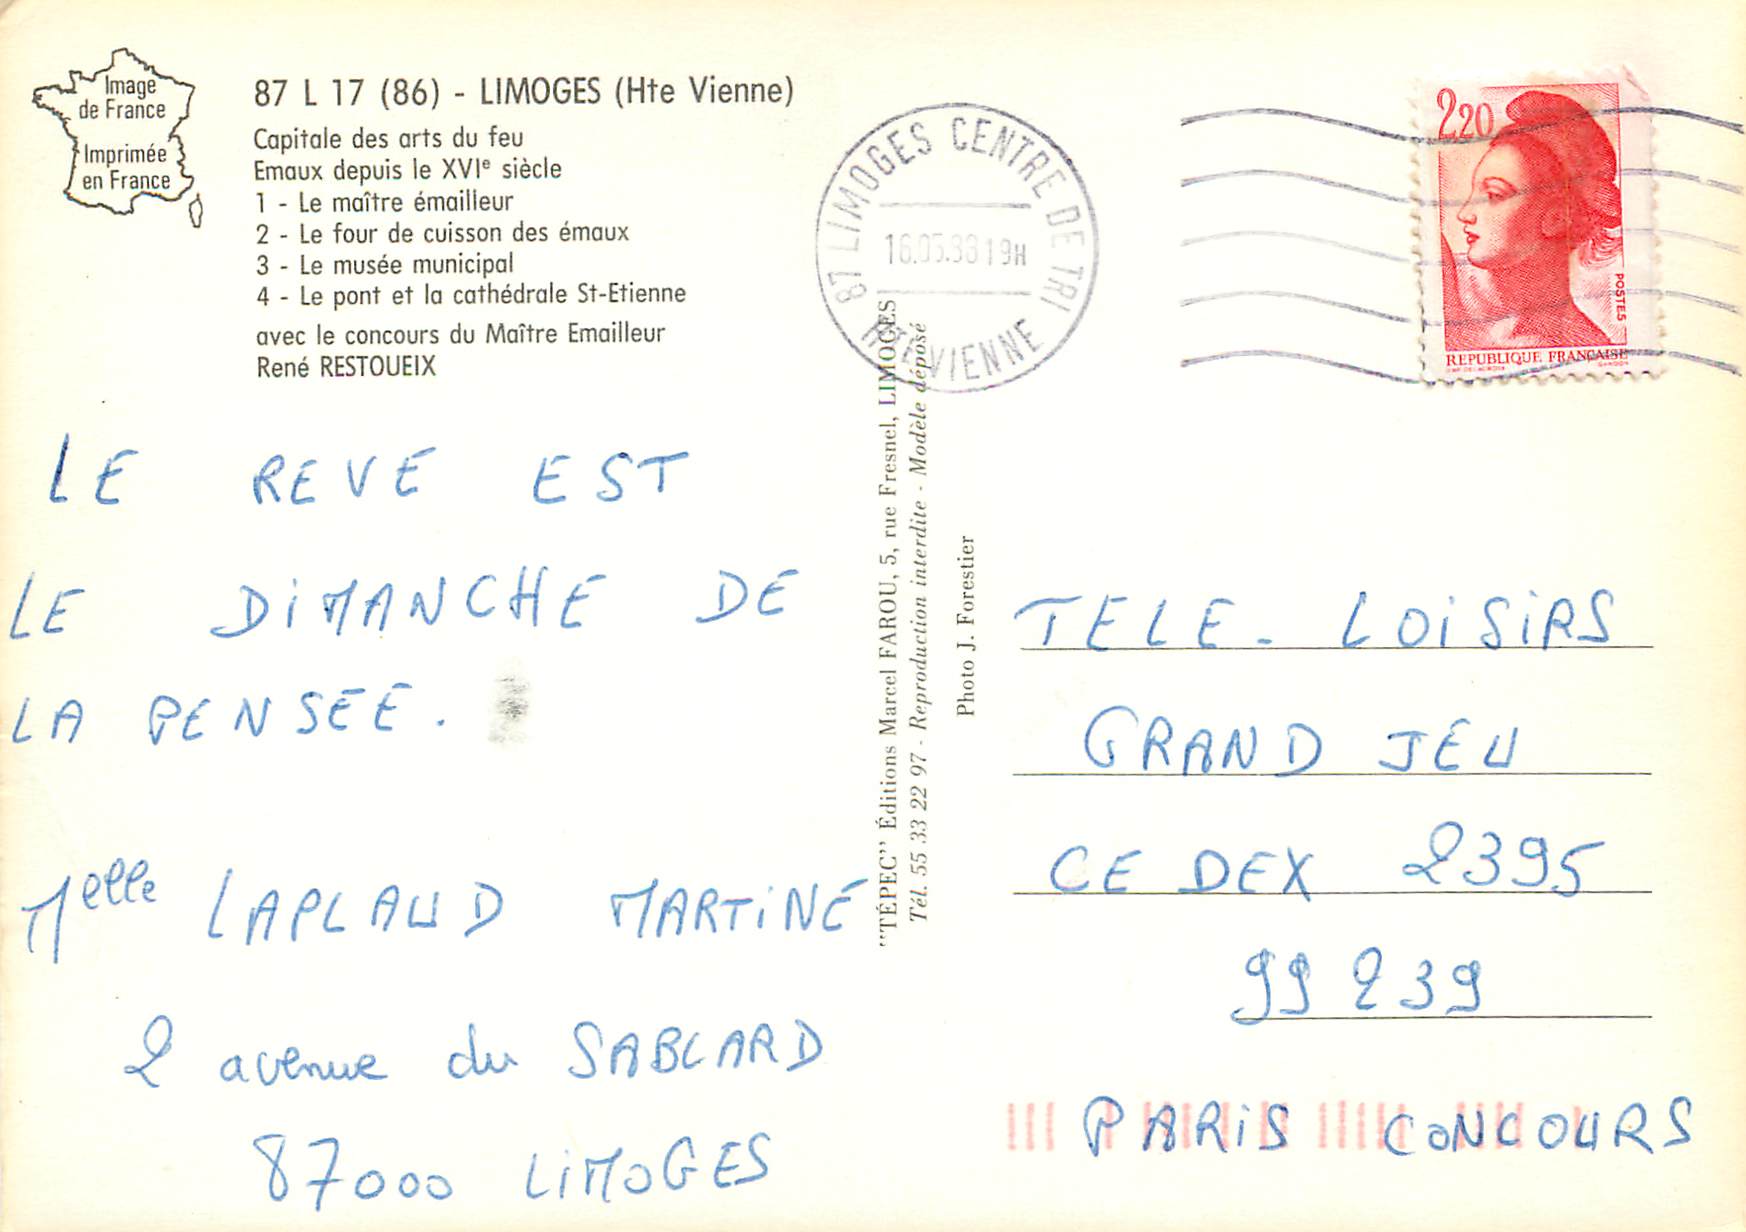 Image
de France
Imprimée
en France
87 L 17 (86) - LIMOGES (Hte Vienne)
Capitale des arts du feu
Emaux depuis le XVIe siècle
1 - Le maître émailleur
2 - Le four de cuisson des émaux
3 - Le musée municipal
4 - Le pont et la cathédrale St-Etienne
avec le concours du Maître Emailleur
René RESTOUEIX
LE REVE EST
LE DIMANCHE DE
LA PENSEE.
Melle LAPLAUD MARTINE
2 avenue du SABLARD
87000 LIMOGES
"TÉPEC" Éditions Marcel FAROU, 5, rue Fresnel, LIMOGES
Tél. 55 33 22 97 - Reproduction interdite - Modèle déposé
Photo J. Forestier
87 LIMOGES CENTRE DE TRI
19H
HTE VIENNE
2,20
POSTES
REPUBLIQUE FRANÇAISE
TELE - LOISIRS
GRAND JEU
CEDEX 2395
99 239
PARIS CONCOURS